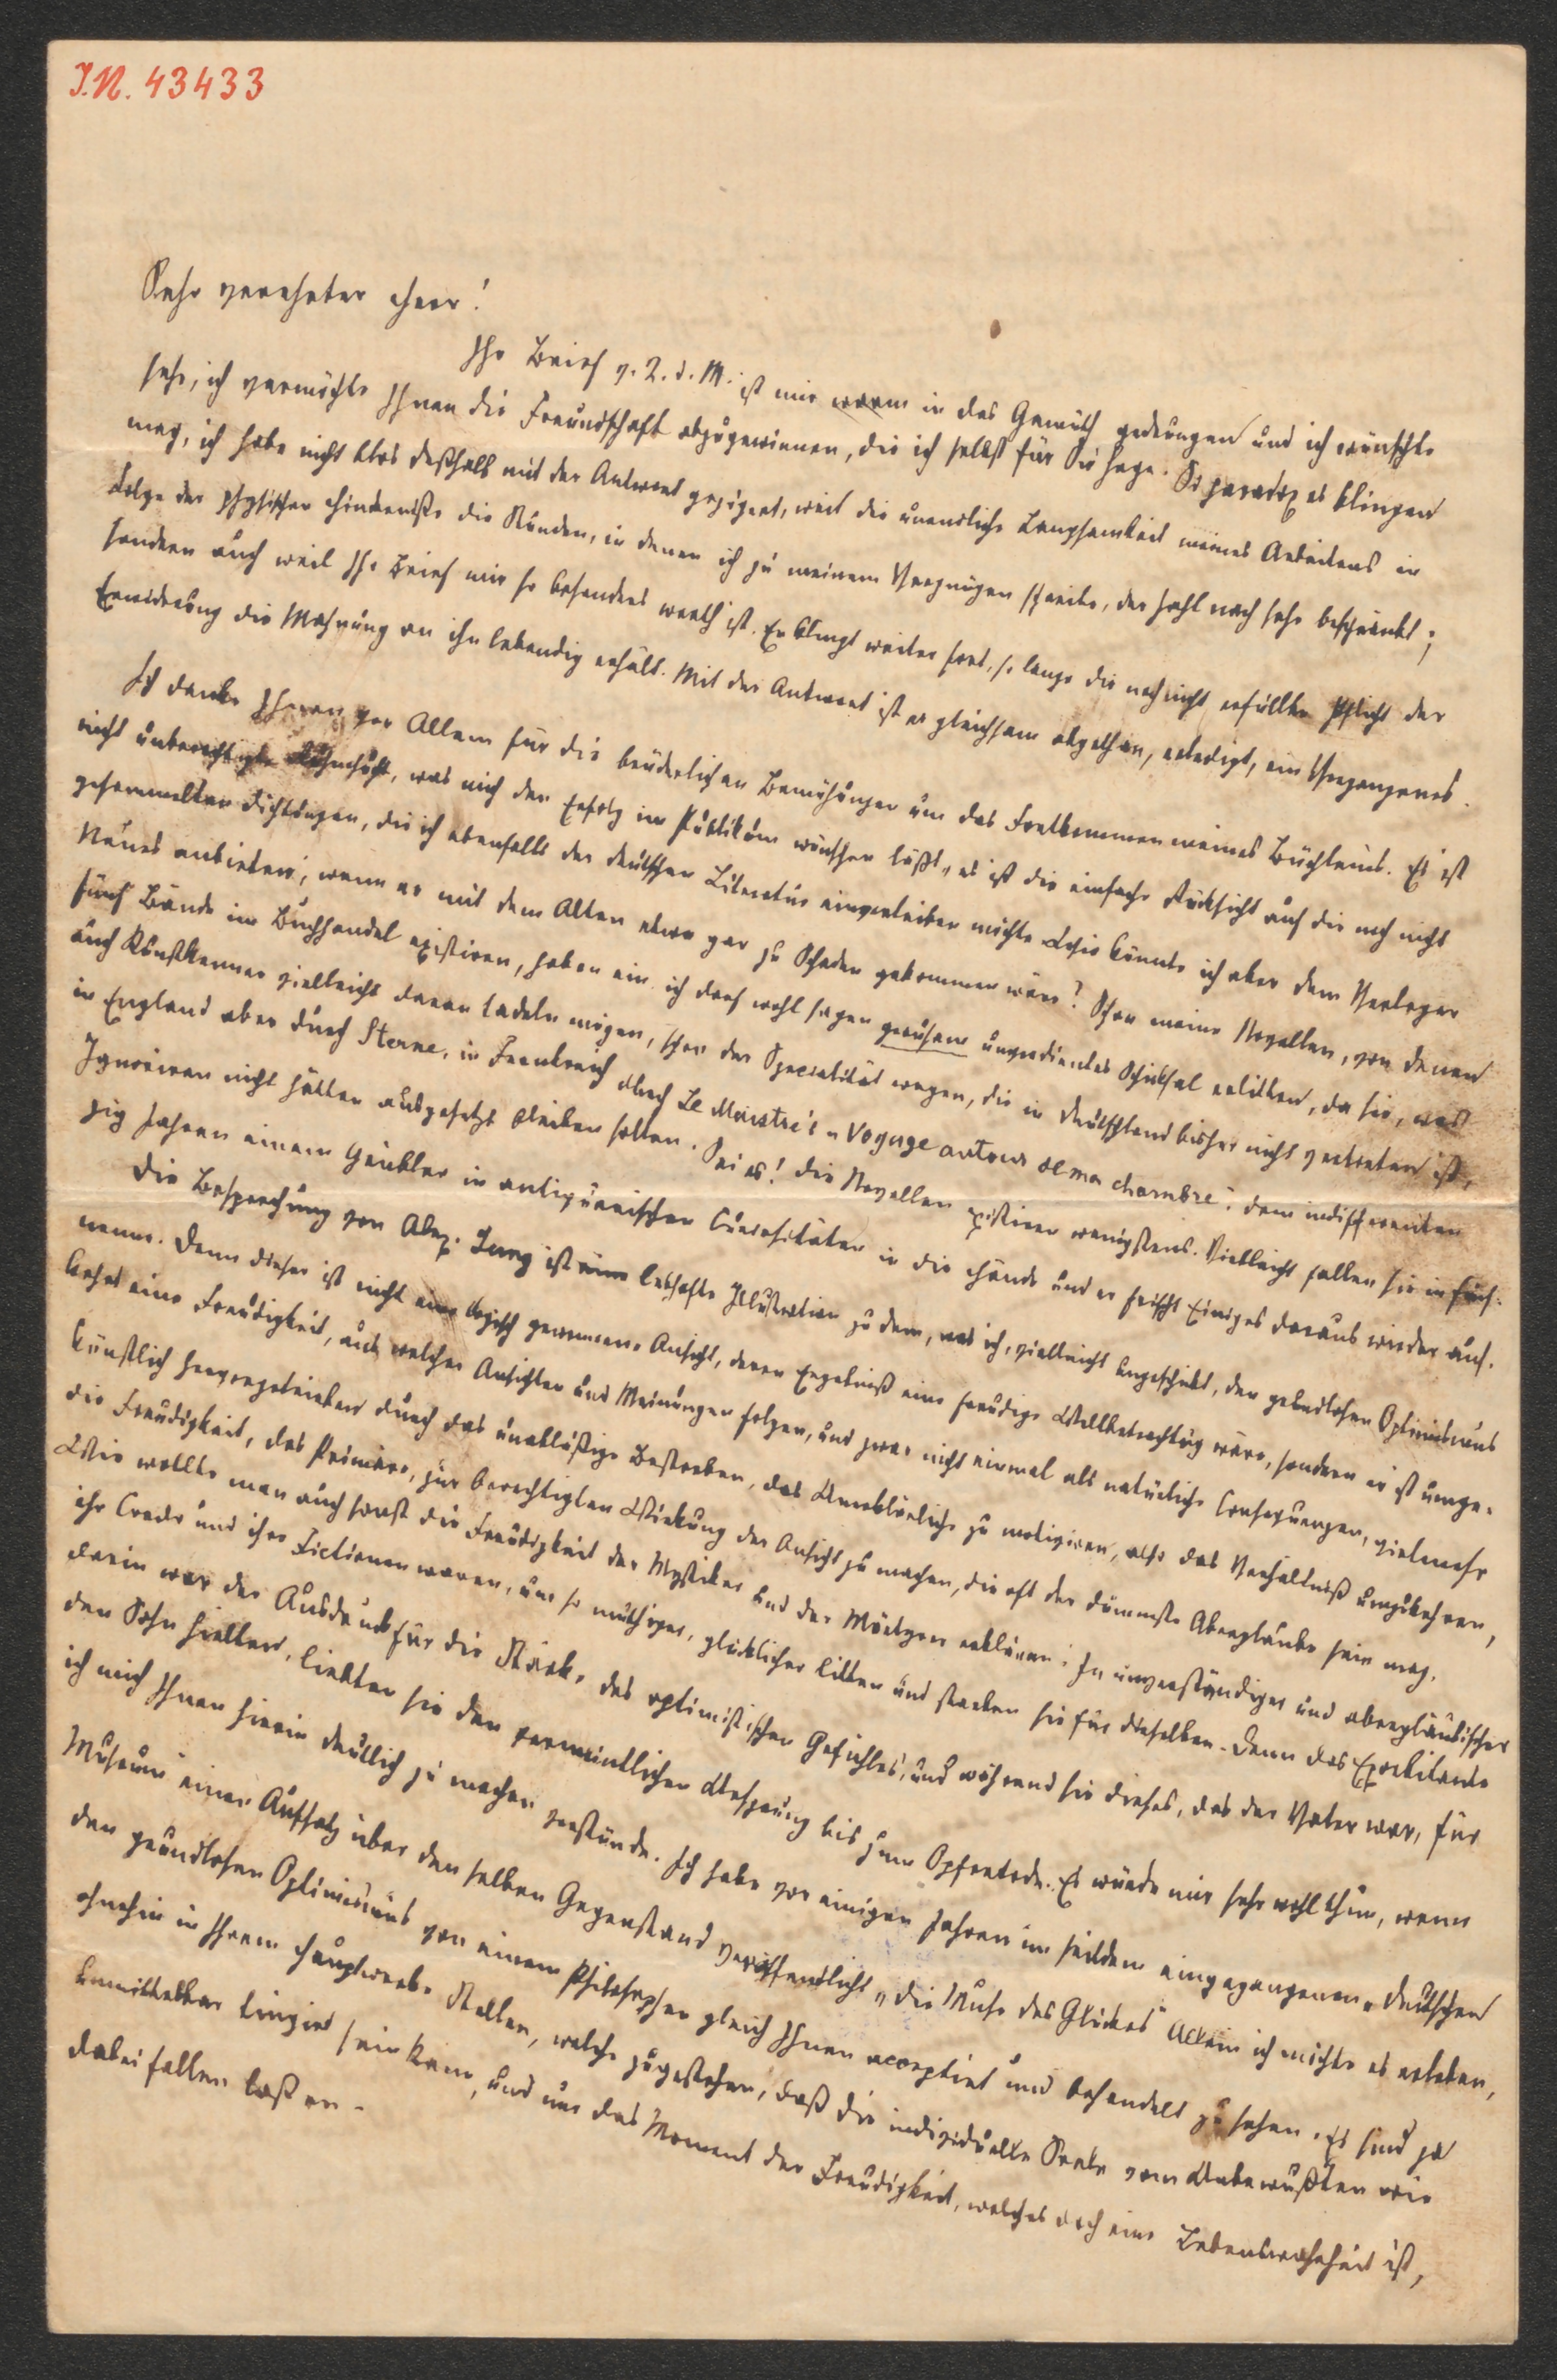 I.N. 43433
Sehr verehrter Herr!
Ihr Brief v. 2. d. M. ist mir warm in das Gemüth gedrungen und ich wünschte
sehr, ich vermöchte Ihnen die Freundschaft abzugewinnen, die ich selbst für Sie hege. So paradox es klingen
mag, ich habe nicht blos deßhalb mit der Antwort gezögert, weil die unendliche Langsamkeit meines Arbeitens in
Folge der physischen Hinderniße die Stunden, in denen ich zu meinem Vergnügen schreibe, der Zahl nach sehr beschränkt;
sondern auch weil Ihr Brief mir so besonders werth ist. Er klingt weiter fort, so lange die noch nicht erfüllte Pflicht der
Erwiderung die Mahnung an ihn lebendig erhält. Mit der Antwort ist er gleichsam abgethan, erledigt, ein Vergangenes.
Ich danke Ihnen vor Allem für die brüderlichen Bemühungen um das Fortkommen meines Büchleins. Es ist
nicht unberechtigte Ruhmsucht, was mich den Erfolg im Publikum wünschen läßt, es ist die einfache Rücksicht auf die noch nicht
gesammelten Dichtungen, die ich ebenfalls der deutschen Literatur einverleiben möchte. Wie könnte ich aber dem Verleger
Neues anbieten, wenn er mit dem Alten etwa gar zu Schaden gekommen wäre? Schon meine Novellen, von denen
fünf Bände im Buchhandel existiren, haben ein ich darf wohl sagen grausam unverdientes Schicksal erlitten, da sie, was
auch Kunstkenner vielleicht daran tadeln mögen, schon der Specialität wegen, die in Deutschland bisher nicht vertreten ist,
in England aber durch Sterne, in Frankreich durch Le Maistre's „Voyage autour de ma chambre", dem indifferenten
Ignoriren nicht hätten ausgesetzt bleiben sollen. Sei es! Die Novellen existiren wenigstens. Vielleicht fallen sie in fünf-
zig Jahren einem Grübler in antiquarischen Curiositäten in die Hände und er frischt Einiges daraus wieder auf.
Die Besprechung von Alex. Jung ist eine lebhafte Illustration zu dem, was ich, vielleicht ungeschickt, den grundlosen Optimismus
nenne. Denn dieser ist nicht eine logisch gewonnene Ansicht, deren Ergebniß eine freudige Weltbetrachtung wäre, sondern er ist umge-
kehrt eine Freudigkeit, aus welcher Ansichten und Meinungen folgen, und zwar nicht einmal als natürliche Consequenzen, vielmehr
künstlich hervorgetrieben durch das unabläßige Bestreben, das Unerklärliche zu motiviren, also das Verhältniß umzukehren,
die Freudigkeit, das Primäre, zur berechtigten Wirkung der Ansicht zu machen, die oft der dümmste Aberglaube sein mag.
Wie wollte man auch sonst die Freudigkeit der Mystiker und der Märtyrer erklären? Je unverständiger und abergläubischer
ihr Credo und ihre Fictionen waren, um so muthiger, glücklicher litten und starben sie für dieselben. Denn das Exorbitante
darin war der Ausdruck für die Stärke des optimistischen Gefühles, und während sie dieses, das der Vater war, für
den Sohn hielten, liebten sie den vermeintlichen Ursprung bis zum Opfertode. Es würde mir sehr wohl thun, wenn
ich mich Ihnen hierin deutlich zu machen verstünde. Ich habe vor einigen Jahren im seitdem eingegangenen „Deutschen
Museum" einen Aufsatz über den selben Gegenstand veröffentlicht „die Muse des Glückes" Allein ich möchte es erleben,
den grundlosen Optimismus von einem Philosophen gleich Ihnen acceptirt und behandelt zu sehen. Es sind ja
ohnehin in Ihrem Hauptwerke Stellen, welche zugestehen, daß die individuelle Seele vom Unbewußten wie
unmittelbar tingirt sein kann, und nur das Moment der Freudigkeit, welches doch eine Lebenswahrheit ist,
dabei fallen laßen.